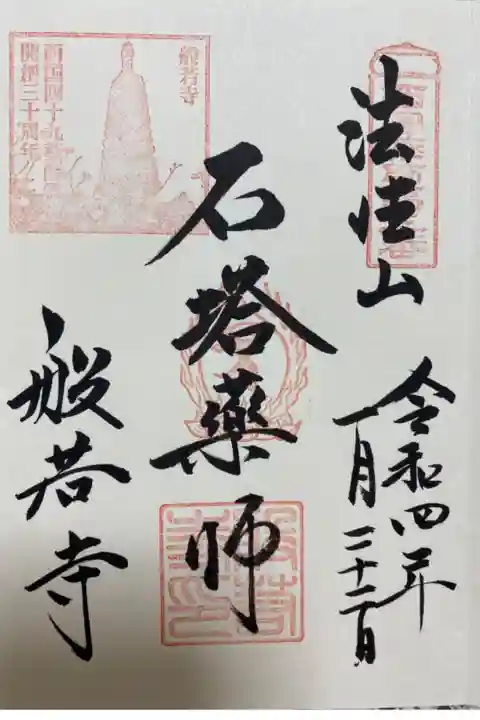 法性山
令和四年
一月二十二日
石塔薬師
般若寺
般若寺
西国四十九薬師
開創三十周年